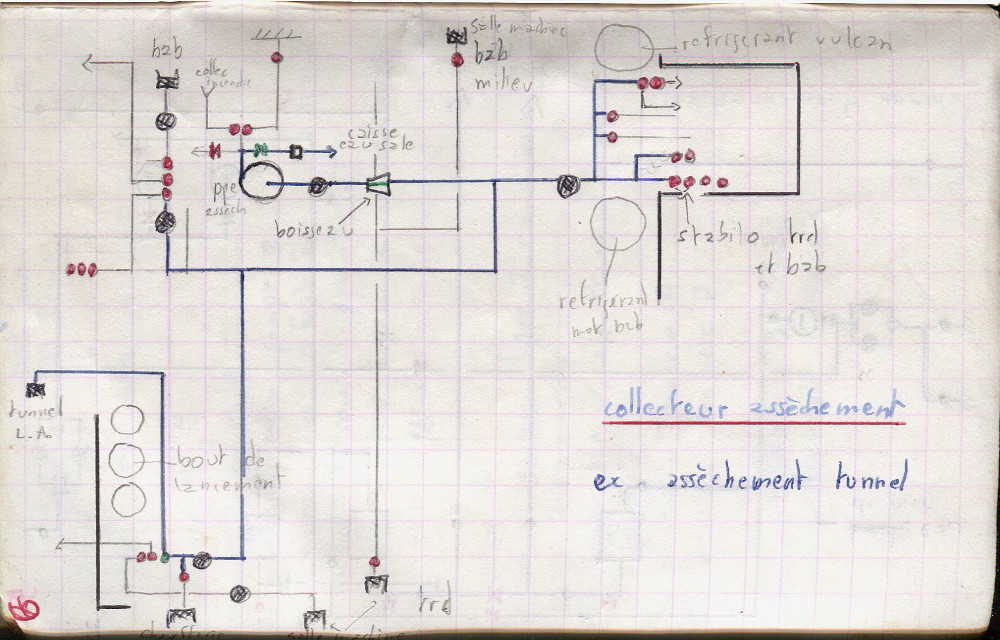 bab
collec
incendie
salle machine
bab
milieu
refrigerant vulcan
caisse
eau sale
ppe
assech
boisseau
stabilo trd
et bab
refrigerant
mot bab
tunnel
L.A.
bout de
lancement
collecteur assèchement
ex assèchement tunnel
trd
chaufferie
salle machine